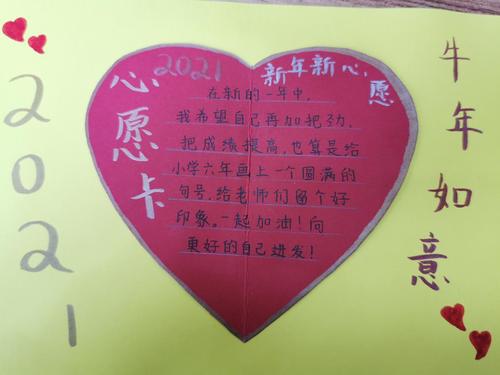 2021
心愿卡
2021
新年新心愿
在新的一年中，
我希望自己再加把劲，
把成绩提高，也算是给
小学六年画上一个圆满的
句号，给老师们留个好
印象。一起加油！向
更好的自己进发！
牛年如意